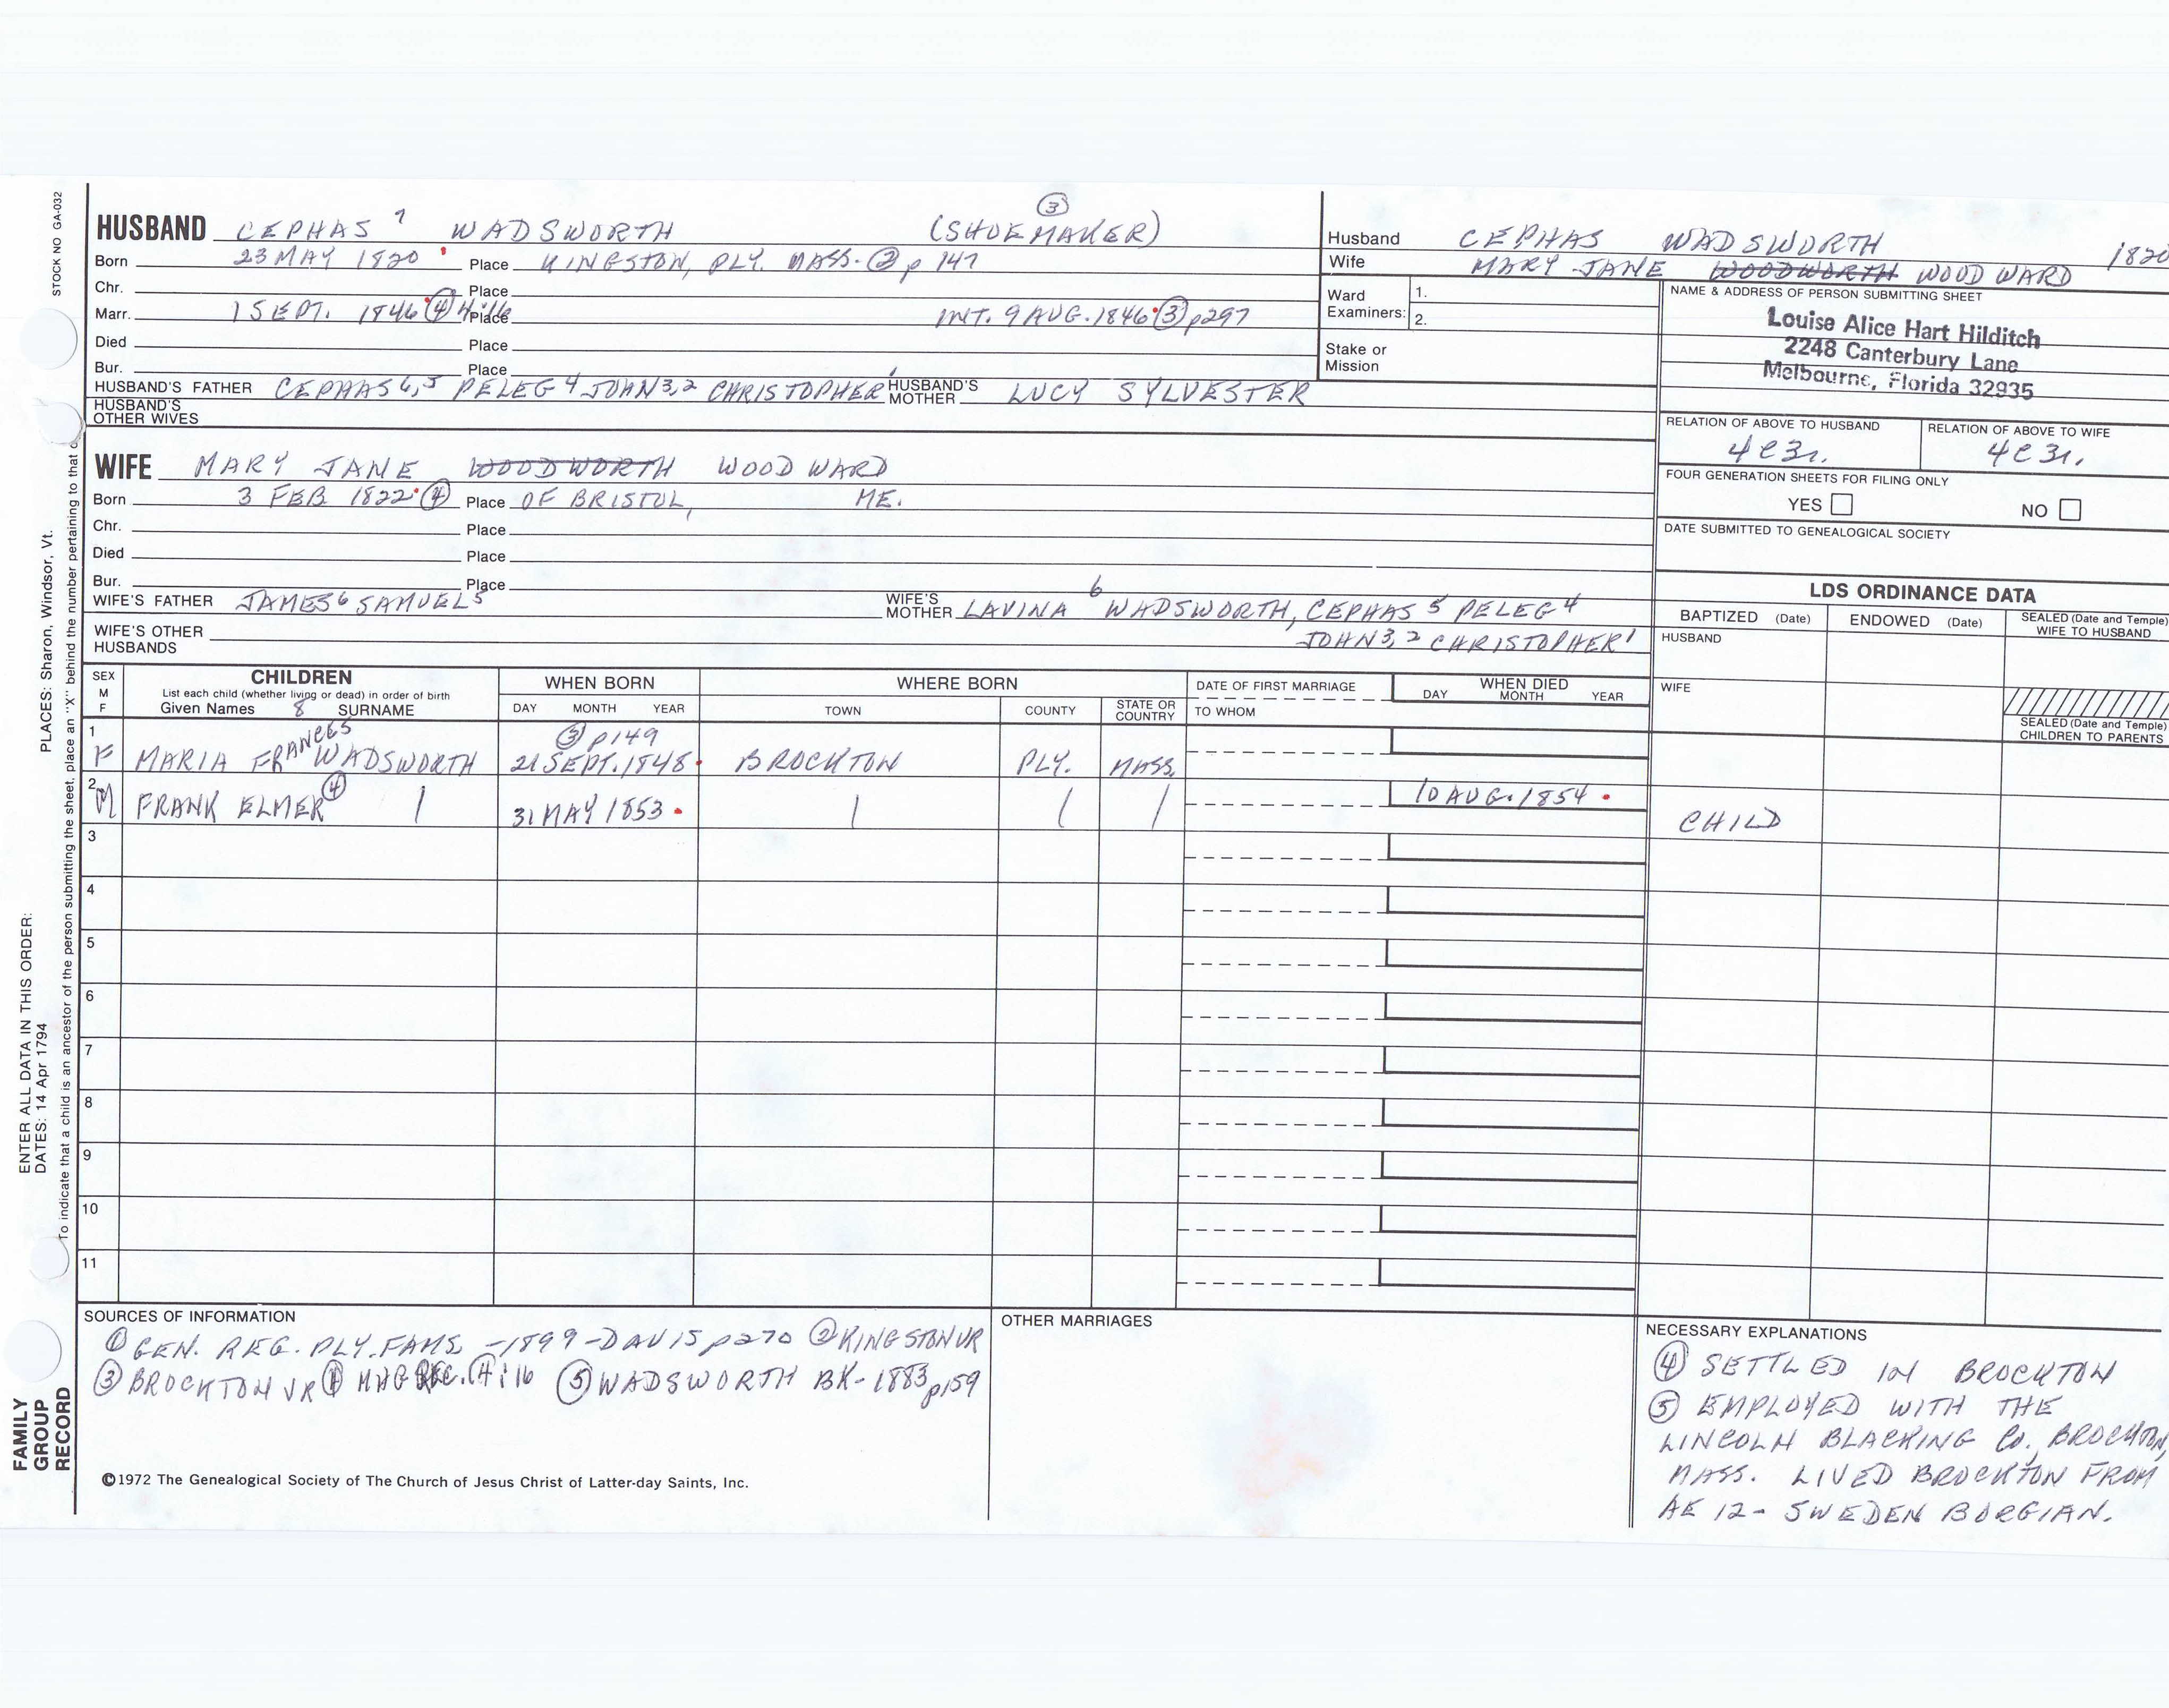 STOCK NO GA-032
PLACES: Sharon, Windsor, Vt.
ENTER ALL DATA IN THIS ORDER:
DATES: 14 Apr 1794
To indicate that a child is an ancestor of the person submitting the sheet, place an "X" behind the number pertaining to that
FAMILY
GROUP
RECORD
HUSBAND CEPHAS 7 WADSWORTH (SHOEMAKER) ③
Born 23 MAY 1820 Place KINGSTON, PLY. MASS. ② p 147
Chr. Place
Marr. 1 SEPT. 1846 ④ 4:16 Place INT. 9 AUG. 1846 ③ p297
Died Place
Bur. Place
HUSBAND'S FATHER CEPHAS 6,5 PELEG 4 JOHN 3,2 CHRISTOPHER 1 HUSBAND'S MOTHER LUCY SYLVESTER
HUSBAND'S
OTHER WIVES
WIFE MARY JANE WOODWORTH WOODWARD
Born 3 FEB 1822 ④ Place OF BRISTOL, ME.
Chr. Place
Died Place
Bur. Place
WIFE'S FATHER JAMES 6 SAMUEL 5 WIFE'S MOTHER LAVINA 6 WADSWORTH, CEPHAS 5 PELEG 4
JOHN 3,2 CHRISTOPHER 1
WIFE'S OTHER
HUSBANDS
Husband CEPHAS WADSWORTH 1820
Wife MARY JANE WOODWORTH WOODWARD
Ward
Examiners: 1.
2.
Stake or
Mission
NAME & ADDRESS OF PERSON SUBMITTING SHEET
Louise Alice Hart Hilditch
2248 Canterbury Lane
Melbourne, Florida 32935
RELATION OF ABOVE TO HUSBAND RELATION OF ABOVE TO WIFE
4C3r. 4C3r.
FOUR GENERATION SHEETS FOR FILING ONLY
YES NO
DATE SUBMITTED TO GENEALOGICAL SOCIETY
LDS ORDINANCE DATA
BAPTIZED (Date) ENDOWED (Date) SEALED (Date and Temple)
WIFE TO HUSBAND
HUSBAND
WIFE
SEALED (Date and Temple)
CHILDREN TO PARENTS
SEX
M
F
CHILDREN
List each child (whether living or dead) in order of birth
Given Names 8 SURNAME
WHEN BORN
DAY MONTH YEAR
WHERE BORN
TOWN COUNTY STATE OR COUNTRY
DATE OF FIRST MARRIAGE
TO WHOM
WHEN DIED
DAY MONTH YEAR
1 FRANCES ③ p149
F MARIA FRAN WADSWORTH 21 SEPT. 1848 BROCKTON PLY. MASS.
2 M FRANK ELMER ④ 31 MAY 1853 10 AUG. 1854 CHILD
3
4
5
6
7
8
9
10
11
SOURCES OF INFORMATION
① GEN. REG. PLY. FAMS - 1899 - DAVIS p270 ② KINGSTON VR
③ BROCKTON VR ④ 4:16 ⑤ WADSWORTH BK - 1883 p159
©1972 The Genealogical Society of The Church of Jesus Christ of Latter-day Saints, Inc.
OTHER MARRIAGES
NECESSARY EXPLANATIONS
④ SETTLED IN BROCKTON
⑤ EMPLOYED WITH THE
LINCOLN BLACKING Co., BROCKTON,
MASS. LIVED BROCKTON FROM
AE 12 - SWEDENBORGIAN.